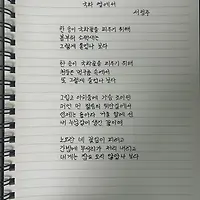 국화 옆에서
서정주
한 송이 국화꽃을 피우기 위해
봄부터 소쩍새는
그렇게 울었나 보다
한 송이 국화꽃을 피우기 위해
천둥은 먹구름 속에서
또 그렇게 울었나 보다
그립고 아쉬움에 가슴 조이던
머언 먼 젊음의 뒤안길에서
인제는 돌아와 거울 앞에 선
내 누님같이 생긴 꽃이여
노오란 네 꽃잎이 피려고
간밤에 무서리가 저리 내리고
내게는 잠도 오지 않았나 보다